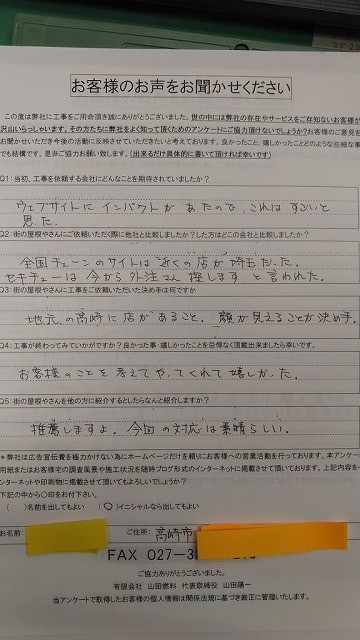 お客様のお声をお聞かせください
この度は弊社に工事をご用命頂き誠にありがとうございました。世の中には弊社の存在やサービスをご存知ないお客様が
沢山いらっしゃいます。その方たちに弊社をよく知って頂くためのアンケートにご協力頂けないでしょうか?お客様のご意見を
お聞かせいただき今後の活動に反映させていただきたいと考えております。良かったこと、嬉しかったことどのような些細な事
でも結構です。是非ご協力お願い致します。(出来るだけ具体的に書いて頂ければ幸いです)
Q1:当初、工事を依頼する会社にどんなことを期待されていましたか?
ウェブサイトに インパクトが あたので、これは すごいと
見た。
Q2:街の屋根やさんにご依頼いただく際に他社と比較しましたか?した方はどこの会社と比較しましたか?
全国チェーンのサイトは 近くの店が 埼玉だった。
セキチューは 今から 外注さん 探します と 言われた。
Q3:街の屋根やさんに工事をご依頼いただいた決め手は何ですか
地元の高崎に店があること。顔が見えることが決め手。
Q4:工事が終わってみていかがですか?良かった事・嬉しかったことを忌憚なく頂戴出来ましたら幸いです。
お客様のことを考えてやってくれて嬉しかった。
Q5:街の屋根やさんを他の方に紹介するとしたらなんと紹介しますか?
推薦しますよ。今回の対応は素晴らしい。
*弊社は広告宣伝費を極力かけない為にホームページだけを頼りにお客様への営業活動を行っております。本アンケー
用紙またはお客様宅の調査風景や施工状況を随時ブログ形式のインターネットに掲載させて頂いております。上記内容を
ンターネットや印刷物に掲載させて頂いてもよろしいでしょうか?
下記の中から〇印をお付下さい。
( )名前を出してもよい (〇)イニシャルなら出してもよい
お名前: ご住所: 高崎市
FAX 027-3
ご協力ありがとうございました。
有限会社 山田燃料 代表取締役 山田陽一
当アンケートで取得したお客様の個人情報は関係法規に基づき厳正に管理いたします。